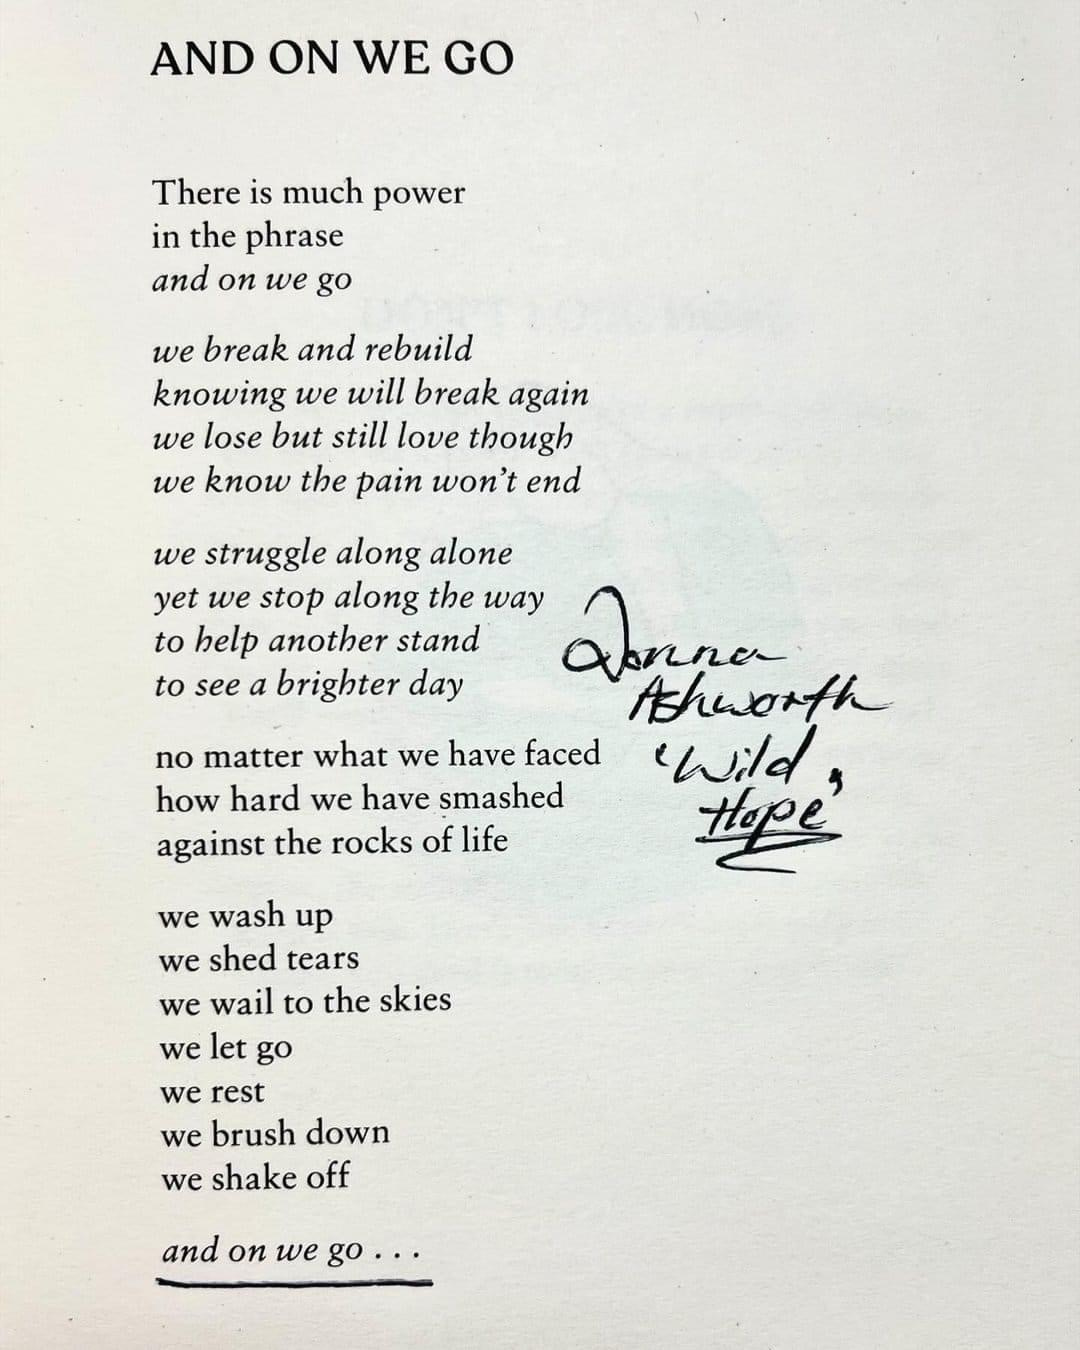 AND ON WE GO
There is much power
in the phrase
and on we go
we break and rebuild
knowing we will break again
we lose but still love though
we know the pain won't end
we struggle along alone
yet we stop along the way
to help another stand
to see a brighter day
no matter what we have faced
how hard we have smashed
against the rocks of life
we wash up
we shed tears
we wail to the skies
we let go
we rest
we brush down
we shake off
and on we go . . .
Donna
Ashworth
'Wild
Hope'